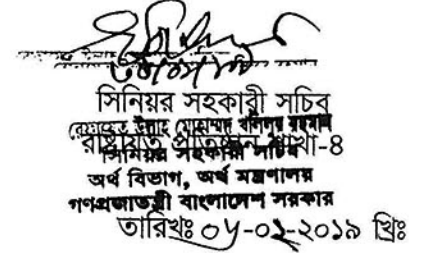 সিনিয়র সহকারী সচিব
মোহাম্মদ
রাষ্ট্রায়ত্ত প্রতিষ্ঠান শাখা-৪
সিনিয়র সহকারী সচিব
অর্থ বিভাগ, অর্থ মন্ত্রণালয়
গণপ্রজাতন্ত্রী বাংলাদেশ সরকার
তারিখঃ ০৬-০২-২০১৯ খ্রিঃ